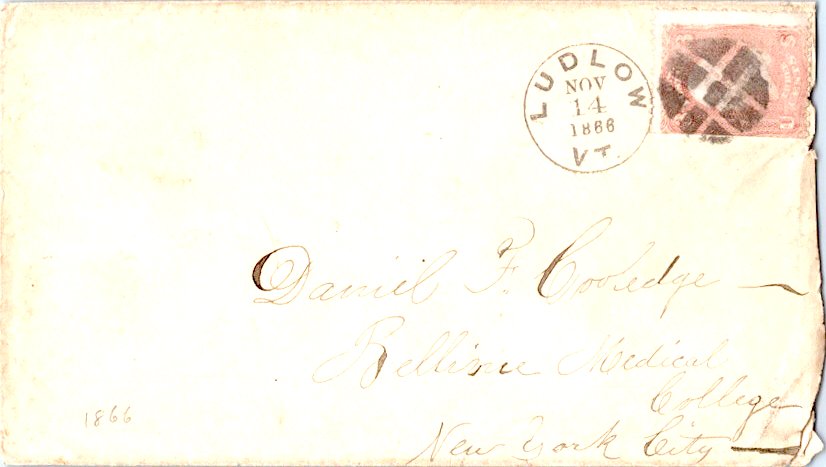 LUDLOW
NOV
14
1866
VT.
Daniel F. Cooledge
Bellivue Medical
College
New York City
1866